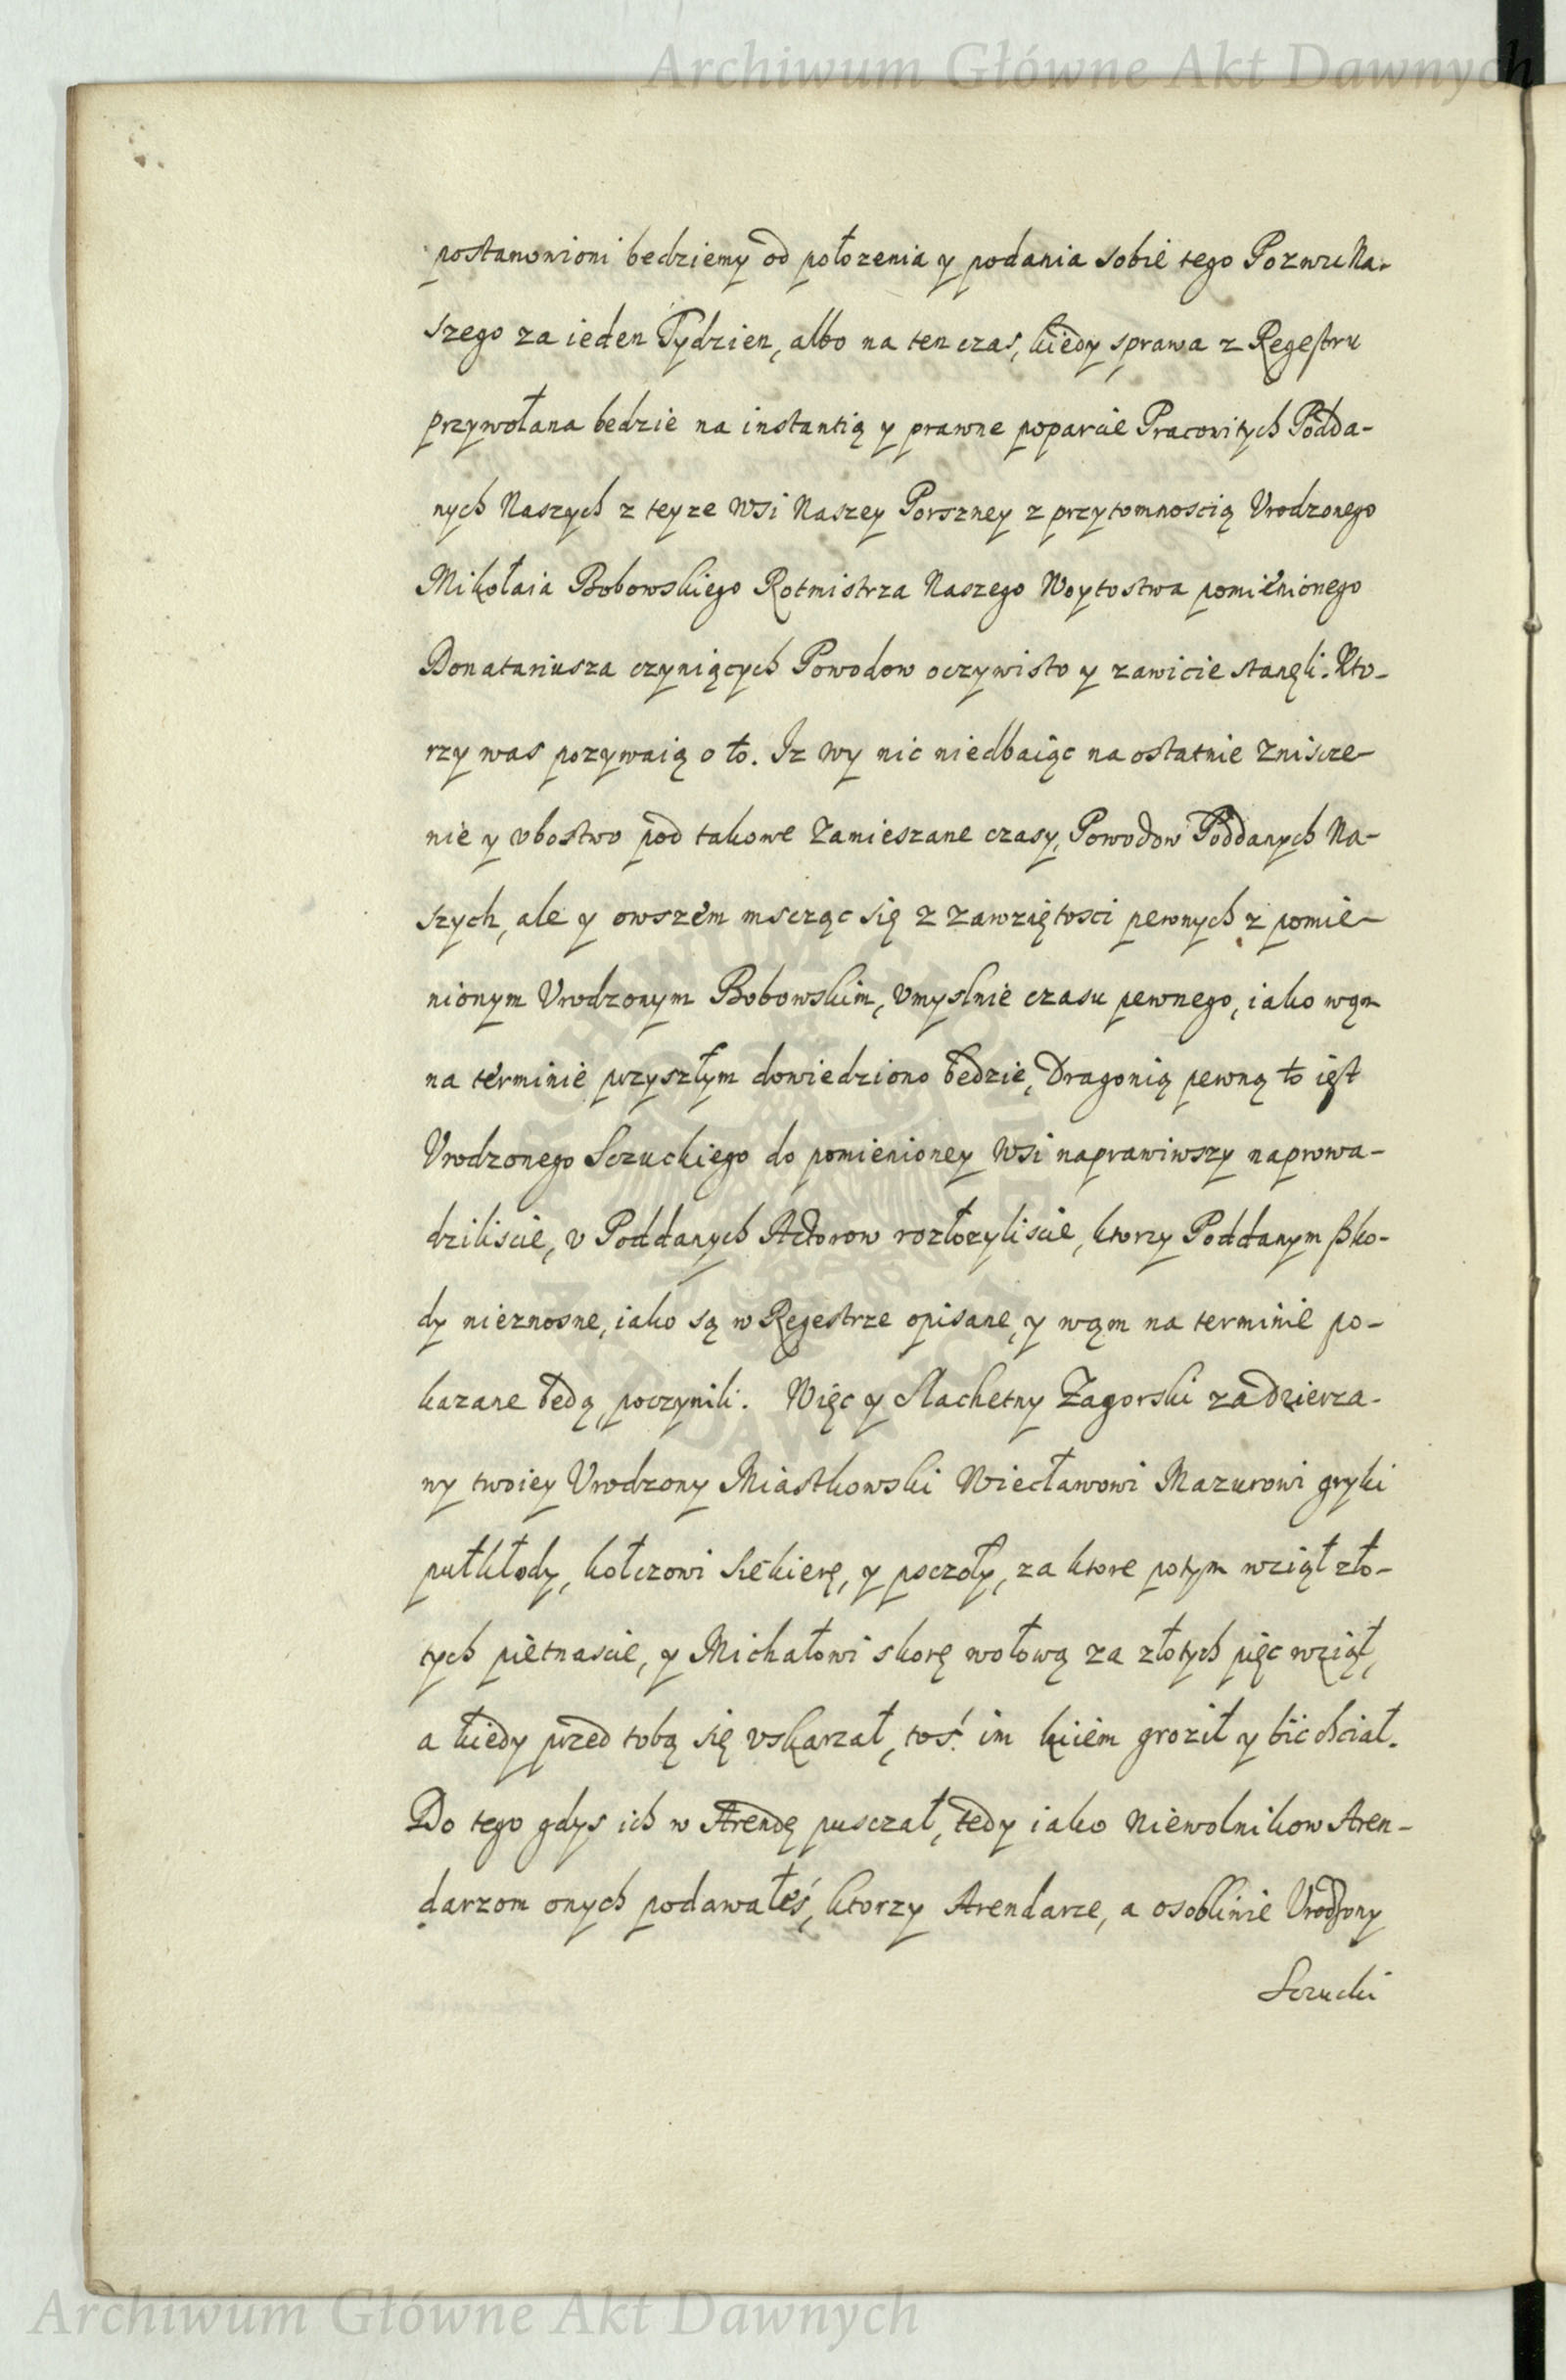 Archiwum Główne Akt Dawnych
postanowioni bedziemy od położenia y podania sobie tego Pozwu Na-
szego za ieden Tydzien, albo na ten czas, kiedy sprawa z Regestru
przywołana bedzie na instantią y prawne poparcie Pracowitych Podda-
nych Naszych z teyze Wsi Naszey Porszney z przytomnoscią Vrodzonego
Mikołaia Bobowskiego Rotmistrza Naszego Woytostwa pomienionego
Donatariusza czyniących Powodow oczywisto y zawicie stanęli. Kto-
rzy was pozywaią o to. Iz wy nic niedbaiąc na ostatnie Zniscze-
nie y vbostwo pod takowe Zamieszane czasy, Powodow Poddanych Na-
szych, ale y owszem mscząc się z zawziętosci pewnych z pomie-
nionym Vrodzonym Bobowskim, Vmyslnie czasu pewnego, iako wąm
na terminie przyszłym dowiedziono bedzie, Dragonią pewną to iest
Vrodzonego Sczuckiego do pomienioney Wsi naprawiwszy naprowa-
dziliscie, v Poddanych Actorow rozłozyliscie, ktorzy Poddanym szko-
dy nieznosne, iako są w Regestrze opisane, y wąm na terminie po-
kazane bedą, poczynili. Więc y Slachetny Zagorski za Dzierza-
wy twoiey Vrodzony Miastkowski Wiecławowi Mazurowi gryki
pułkłody, kołczowi siekierę, y psczoły, za ktore potym wziął zło-
tych pietnascie, y Michałowi skorę wołową za złotych pięc wziął,
a kiedy przed tobą się vskarzał, toś im kiiem groził y bic chciał.
Do tego gdys ich w Arendę pusczał, tedy iako Niewolnikow Aren-
darzom onych podawałeś, ktorzy Arendarze, a osobliwie Vrodzony
Sczucki
ARCHIWUM GŁÓWNE AKT DAWNYCH
Archiwum Główne Akt Dawnych